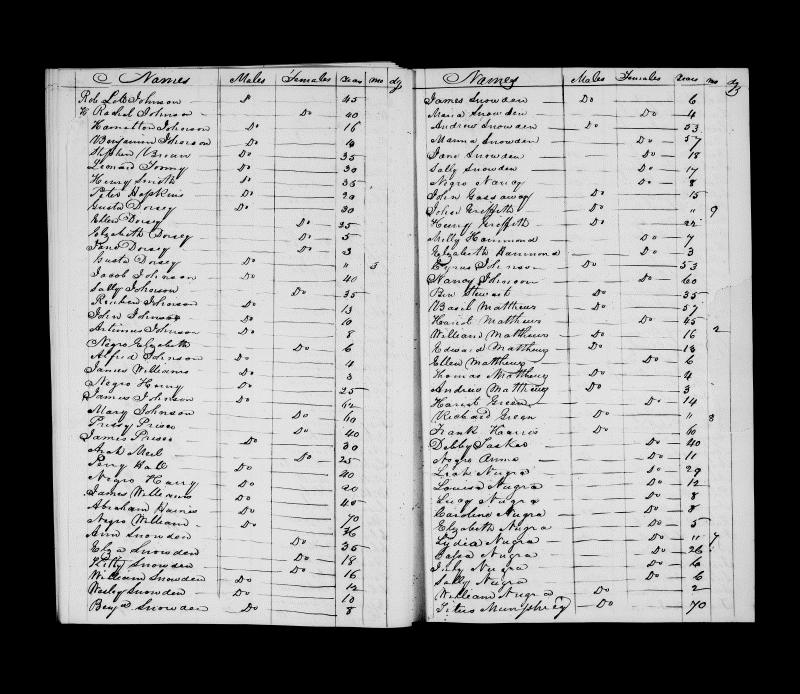 Names Males Females Years mo dy
Rob Lott Johnson 45
Rachel Johnson Do 40
Hamelton Johnson Do 16
Benjamin Johnson Do
Stephen Do 35
Leonard Do 30
Henry Smith Do 35
Peter Hopkins Do
Gusta Dorsey Do 30
Ellen Dorsey Do 25
Elizabeth Dorsey Do 5
Jane Dorsey Do 3
Gusta Dorsey Do " 3
Jacob Johnson Do 40
Sally Johnson Do 35
Reuben Johnson Do 13
John Johnson Do 10
Artimus Johnson Do 8
Negro Elizabeth Do 6
Alfred Johnson Do 4
James Williams Do 3
Negro Henry Do 25
James Johnson Do
Mary Johnson Do 60
Prissy Do 40
James Do 30
Meel Do 25
Perry Hall Do 40
Negro Harry Do 20
James Williams Do 45
Abraham Harris Do 70
Negro William Do 36
Ann Snowden Do 35
Eliza Snowden Do 18
Kitty Snowden Do 16
William Snowden Do 12
Wesley Snowden Do 10
Benja Snowden Do 8
Names Males Females Years mo dy
James Snowden Do 6
Maria Snowden Do 4
Andrew Snowden Do 53
Snowden Do 57
Jane Snowden Do 18
Sally Snowden Do 17
Negro Nancy Do 8
John Gassaway Do 15
John Griffith Do " 9
Henry Griffith Do 22
Milly Hammond Do 7
Elizabeth Hammond Do 3
Cyrus Johnson Do 53
Nancy Johnson Do 60
Ben Stewart Do 35
Basil Matthews Do 57
Hariot Matthews Do 45
William Matthews Do 16 2
Edward Matthews Do 18
Ellen Matthews Do 6
Thomas Matthews Do 4
Andrew Matthews Do 3
Hariot Green Do 14
Richard Green Do " 8
Frank Harris Do 60
Debby Do 40
Negro Anna Do 11
Leah Nugra Do 29
Louisa Nugra Do 12
Lucy Nugra Do 8
Caroline Nugra Do 8
Elizabeth Nugra Do 5
Lydia Nugra Do " 7
Nugra Do 26
July Nugra Do 6
Sally Nugra Do 6
William Nugra Do 2
Titus Munphrey Do 70